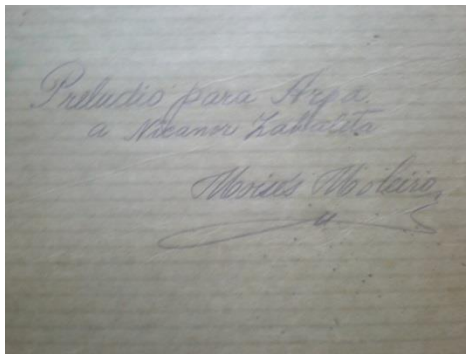 Preludio para Arpa
a Nicanor Zabaleta
Moisés Moleiro